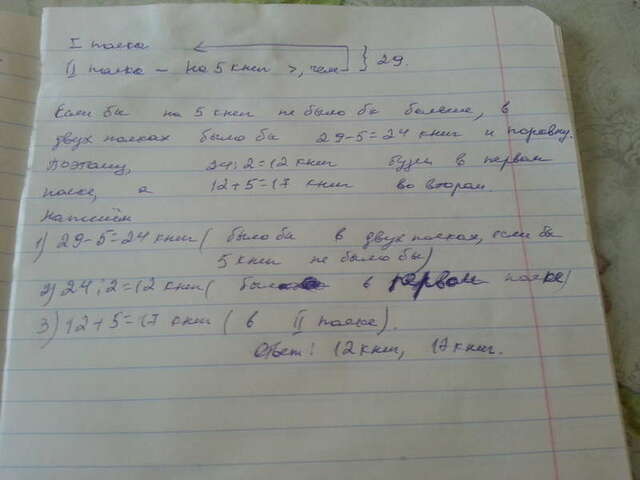 I полка
II полка – на 5 книг >, чем } 29.
Если бы на 5 книг не было бы больше, в
двух полках было бы 29-5=24 книг и поровну.
Поэтому, 24:2=12 книг будет в первой
полке, а 12+5=17 книг во второй.
Напишем
1) 29-5=24 книг ( было бы в двух полках, если бы
5 книг не было бы)
2) 24:2=12 книг ( было в первой полке)
3) 12+5=17 книг ( в II полке).
Ответ: 12 книг, 17 книг.